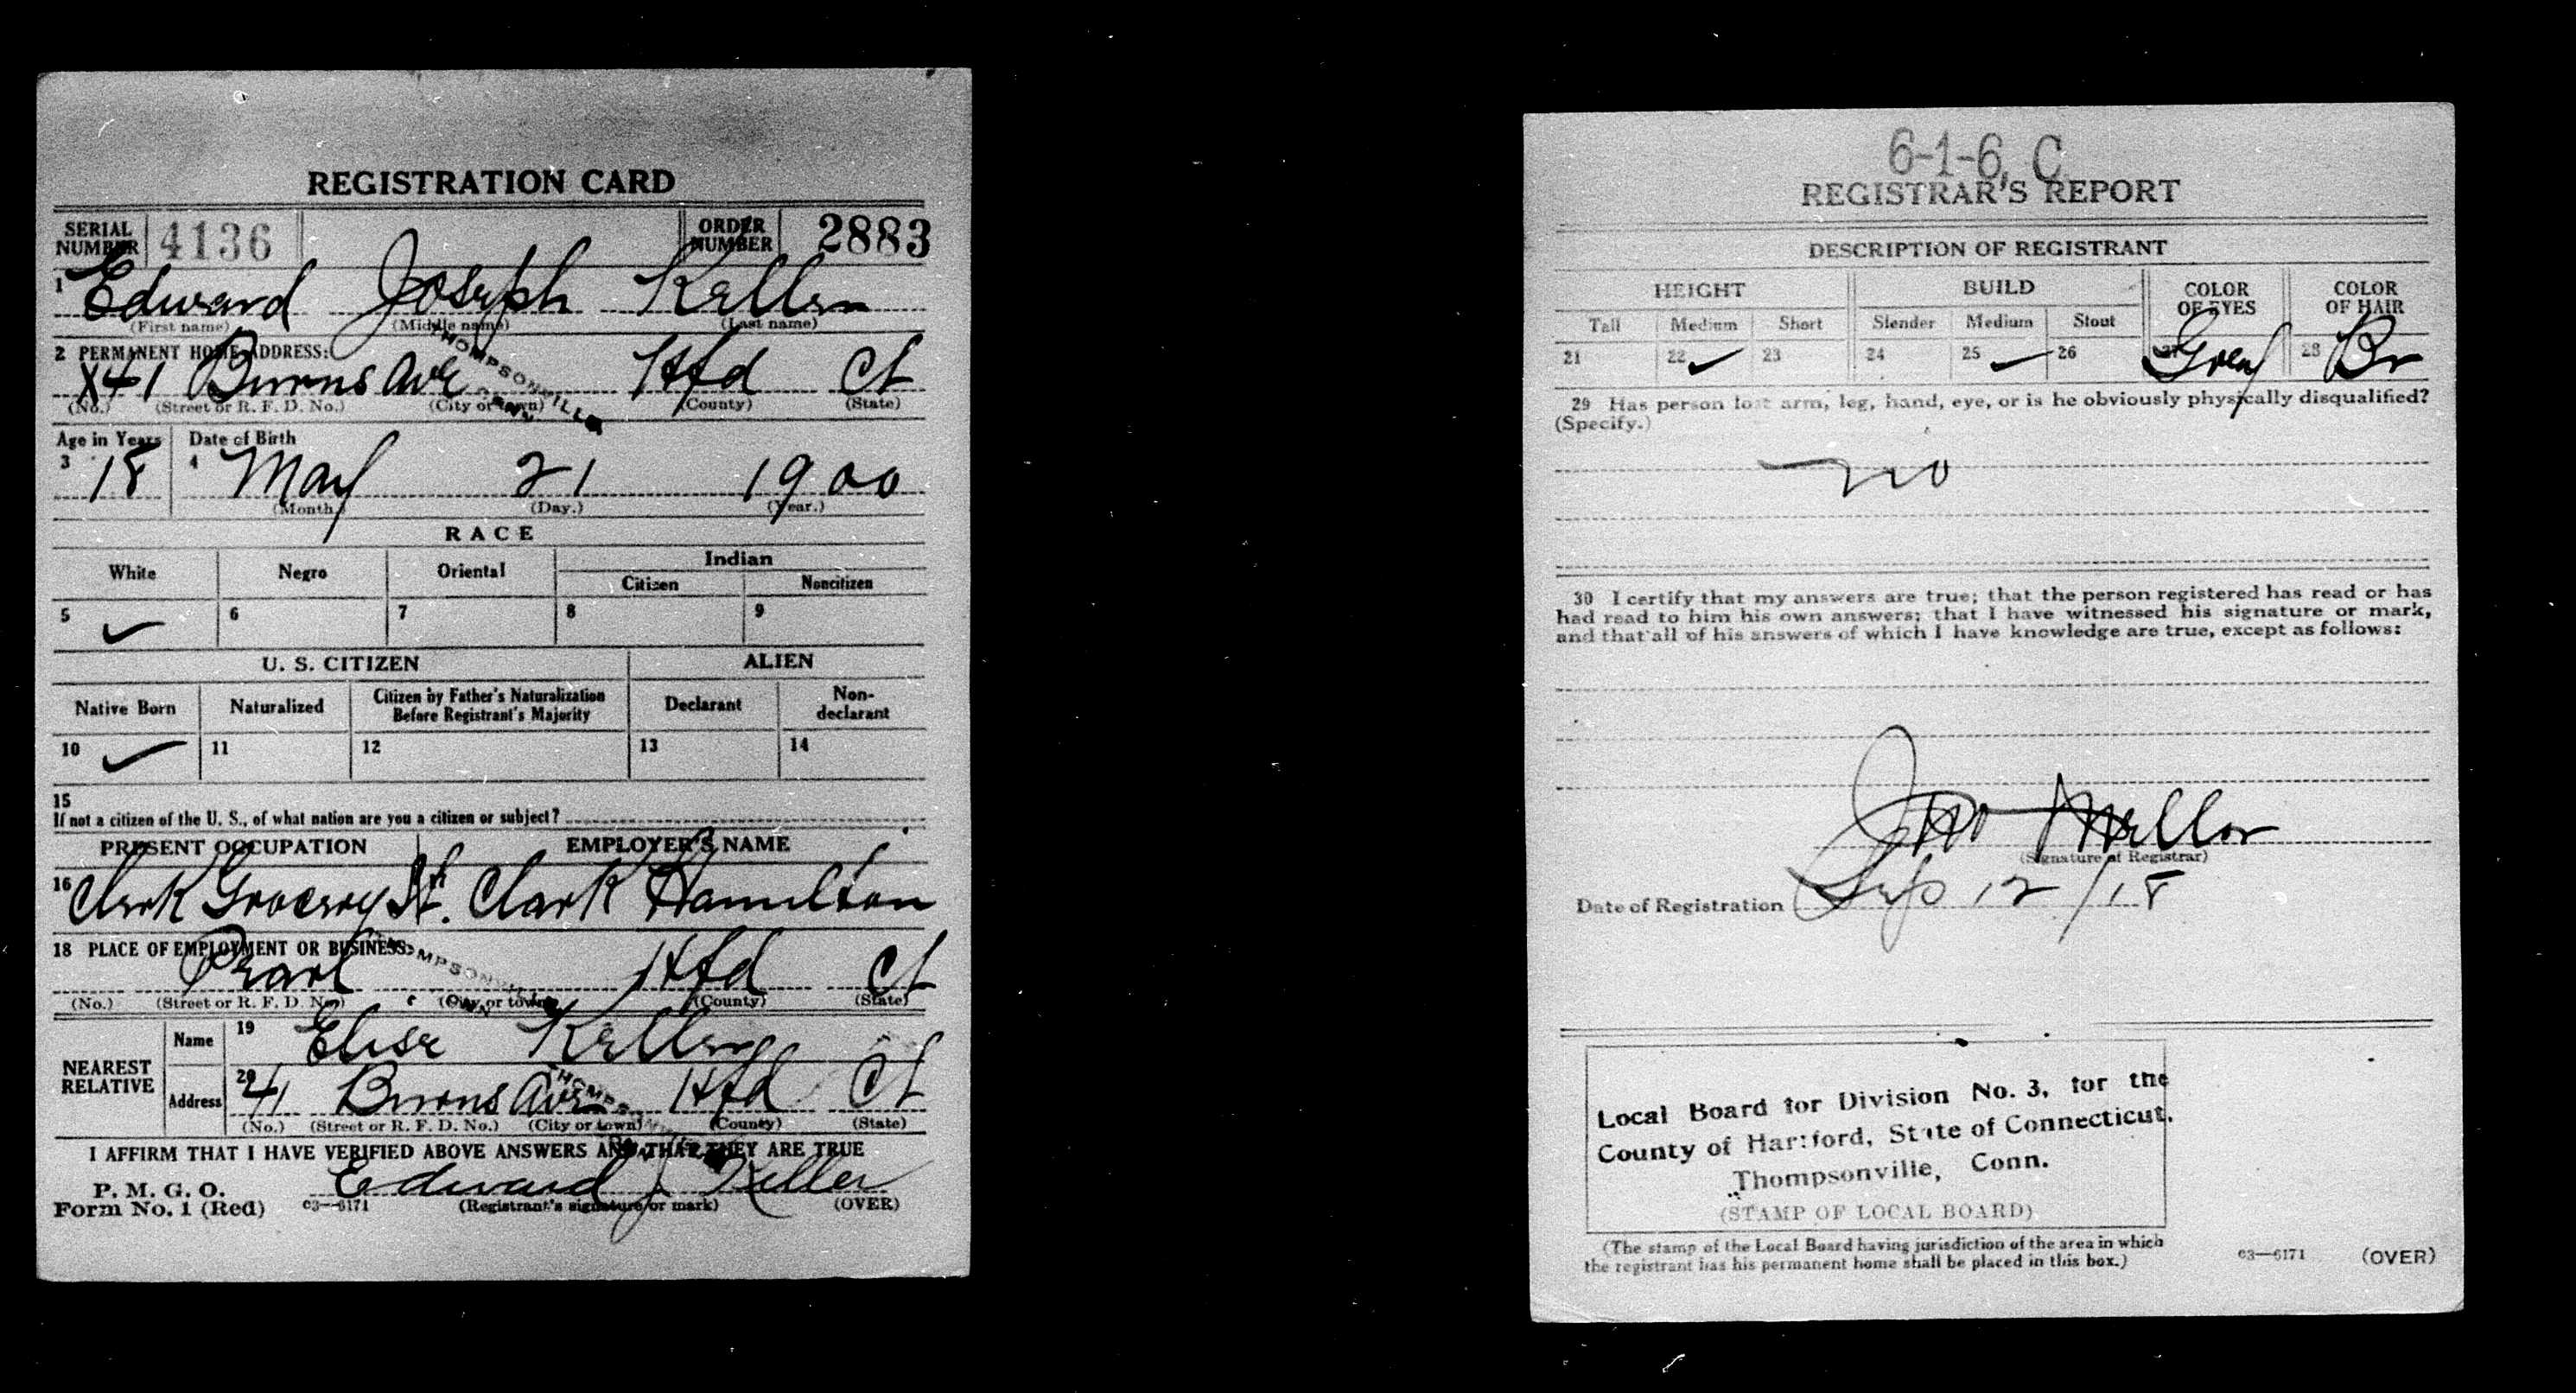 REGISTRATION CARD
SERIAL NUMBER 4136 ORDER NUMBER 2883
1 Edward Joseph Keller
(First name) (Middle name) (Last name)
2 PERMANENT HOME ADDRESS:
X41 Burns Ave THOMPSONVILLE CONN. Htfd Ct
(No.) (Street or R. F. D. No.) (City or town) (County) (State)
Age in Years Date of Birth
3 18 4 May 21 1900
(Month.) (Day.) (Year.)
RACE
White Negro Oriental Indian
Citizen Noncitizen
5 ✓ 6 7 8 9
U. S. CITIZEN ALIEN
Native Born Naturalized Citizen by Father's Naturalization Before Registrant's Majority Declarant Non-declarant
10 ✓ 11 12 13 14
15
If not a citizen of the U. S., of what nation are you a citizen or subject?
PRESENT OCCUPATION EMPLOYER'S NAME
16 Clerk Grocery St. Clark Hamilton
18 PLACE OF EMPLOYMENT OR BUSINESS:
Pearl THOMPSONVILLE CONN Htfd Ct
(No.) (Street or R. F. D. No.) (City or town) (County) (State)
NEAREST RELATIVE
Name 19 Elise Keller
Address 20 41 Burns Ave Htfd Ct
(No.) (Street or R. F. D. No.) (City or town) (County) (State)
I AFFIRM THAT I HAVE VERIFIED ABOVE ANSWERS AND THAT THEY ARE TRUE
P. M. G. O.
Form No. 1 (Red) 03—6171 Edward J Keller
(Registrant's signature or mark) (OVER)
6-1-6, C
REGISTRAR'S REPORT
DESCRIPTION OF REGISTRANT
HEIGHT BUILD COLOR OF EYES COLOR OF HAIR
Tall Medium Short Slender Medium Stout
21 22 ✓ 23 24 25 ✓ 26 27 Grey 28 Br
29 Has person lost arm, leg, hand, eye, or is he obviously physically disqualified?
(Specify.)
no
30 I certify that my answers are true; that the person registered has read or has
had read to him his own answers; that I have witnessed his signature or mark,
and that all of his answers of which I have knowledge are true, except as follows:
Jno Mellor
(Signature of Registrar)
Date of Registration Sep 12/18
Local Board for Division No. 3, for the
County of Hartford, State of Connecticut.
Thompsonville, Conn.
(STAMP OF LOCAL BOARD)
(The stamp of the Local Board having jurisdiction of the area in which
the registrant has his permanent home shall be placed in this box.)
03—6171 (OVER)